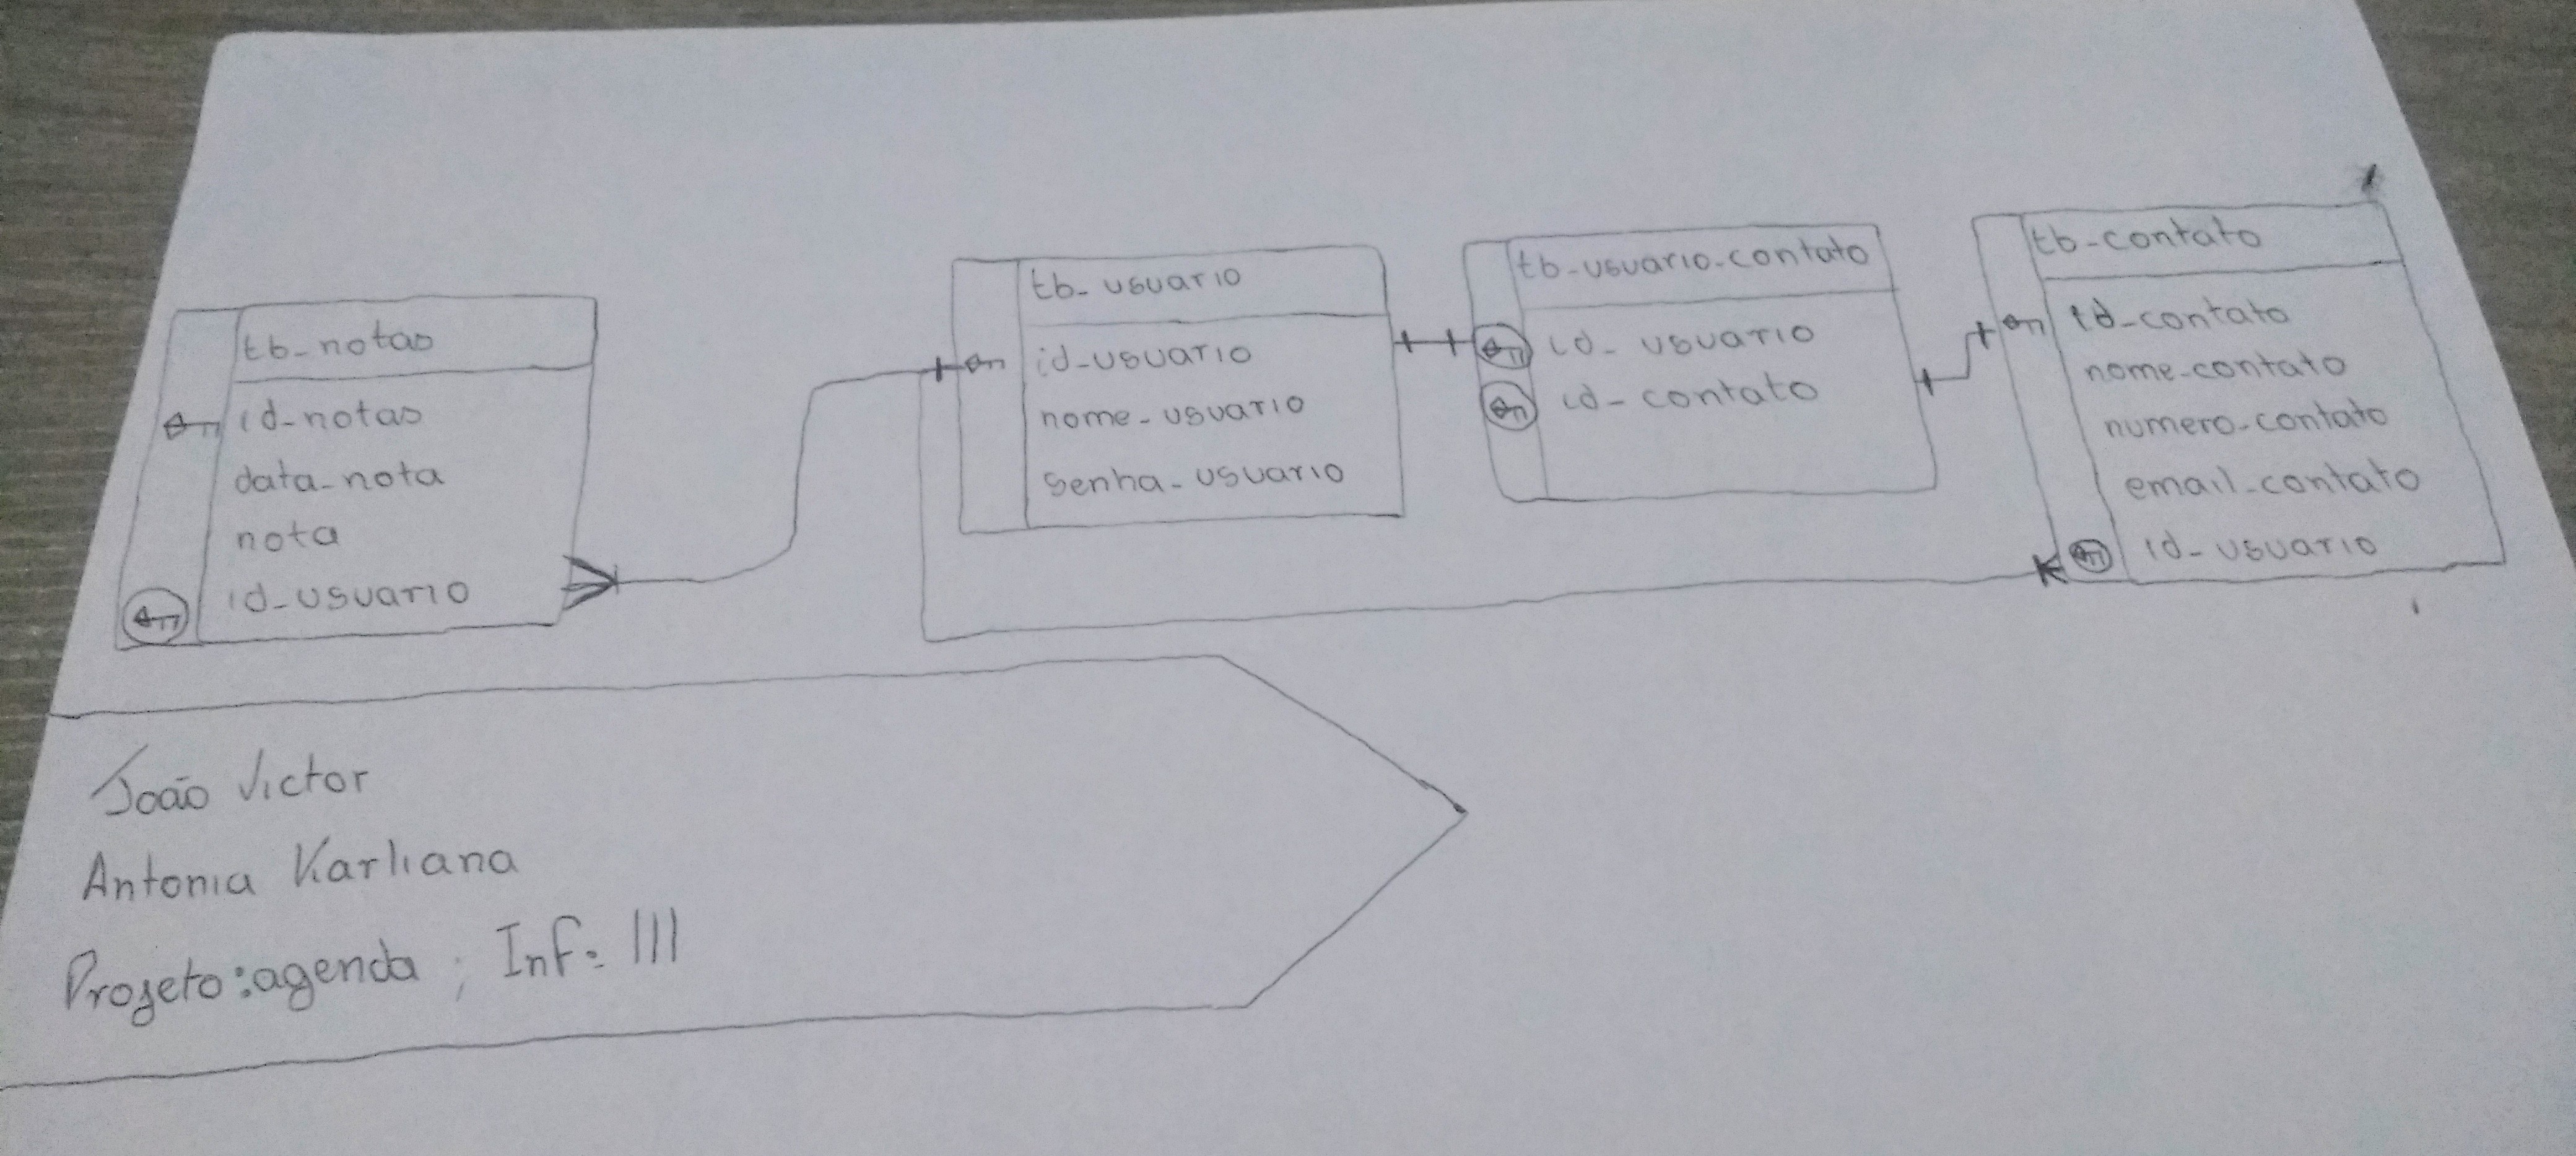 tb_notas
id_notas
data_nota
nota
id_usuario
tb_usuario
id_usuario
nome_usuario
senha_usuario
tb_usuario_contato
id_usuario
id_contato
tb_contato
id_contato
nome_contato
numero_contato
email_contato
id_usuario
João Victor
Antonia Karliana
Projeto:agenda ; Inf: III